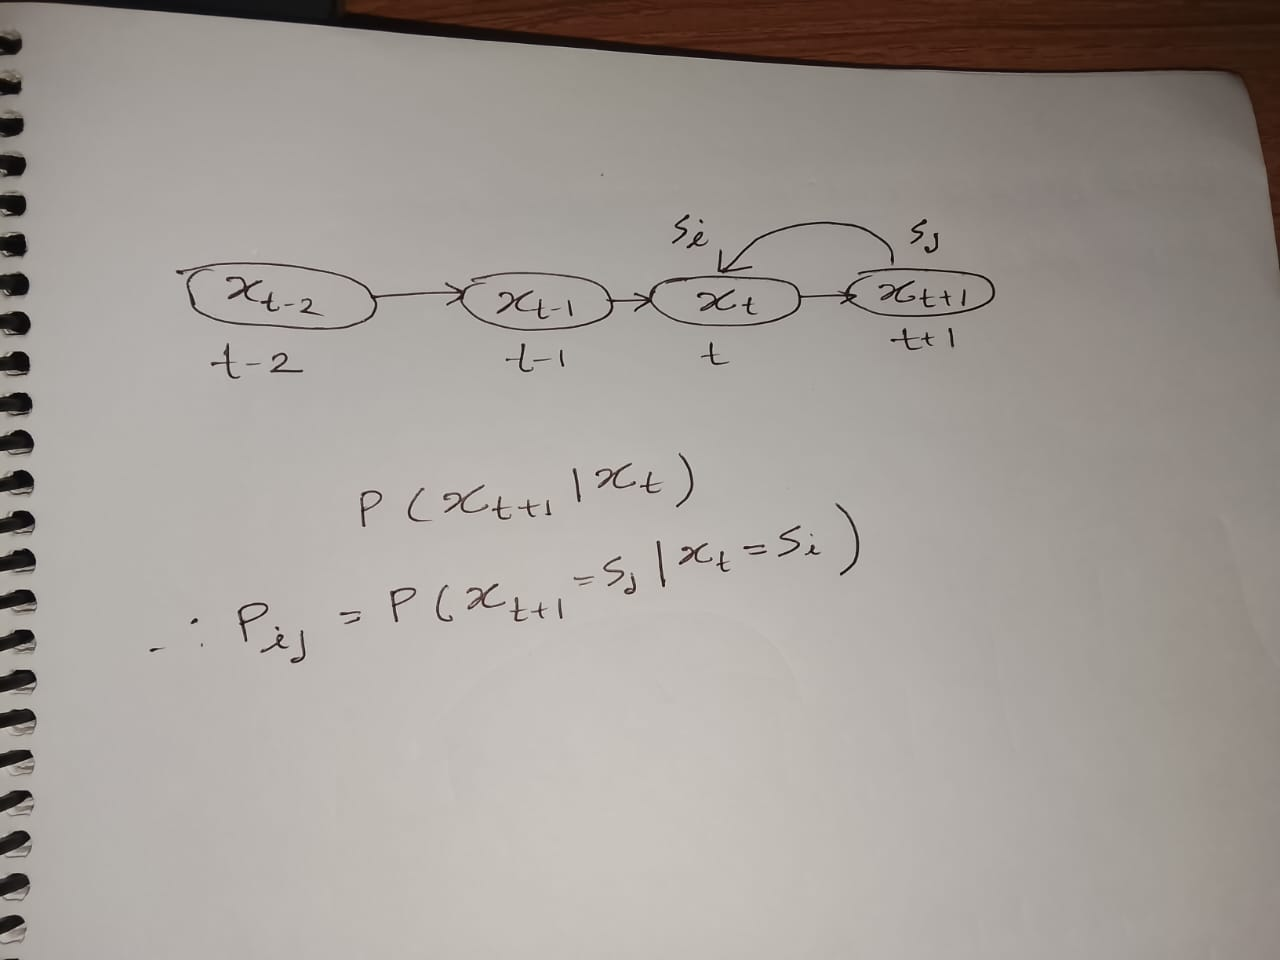 Si Sj
xₜ₋₂ xₜ₋₁ xₜ xₜ₊₁
t-2 t-1 t t+1
P(xₜ₊₁ | xₜ)
∴ Pij = P(xₜ₊₁ = Sj | xₜ = Si)